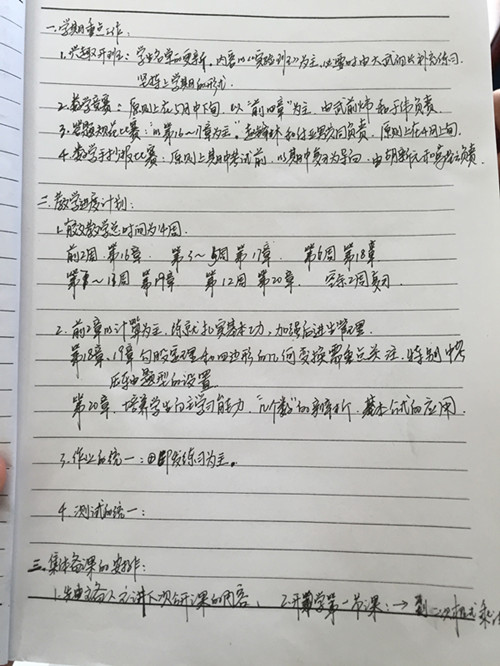 一.学期重点工作:
1.兴趣班开班: 学生名单的更新, 内容以《实验班》为主, 必要时由大武们来补充练习.
坚持上学期的形式.
2.数学竞赛: 原则上在5月中下旬. 以"前四章"为主. 由武前炜和于伟负责.
3.答题规范比赛: "以第16~17章为主" 和付业野负责. 原则上在4月上旬.
4.数学手抄报比赛: 原则上期中考试前. 以期中复习为导向. 由胡新元和负责.
二.教学进度计划:
1.有效教学总时间为14周.
前2周 第16章. 第3~5周 第17章. 第6周 第18章
第~11周 第19章 第12周 第20章. 2周复习
2.前2章以计算为主, 练就扎实基本功, 加强后进生管理.
第18章、19章 勾股定理和四边形的几何变换需重点关注. 特别中考
压轴题型的设置
第20章. 培养学生自主学习能力, "几个数"的辨析. 基本公式的应用.
3.作业的统一: 以练习为主。
4.测试的统一:
三.集体备课的安排:
1.先由主备人主讲下次公开课的内容, 2.开学第一节课: → 二次根式